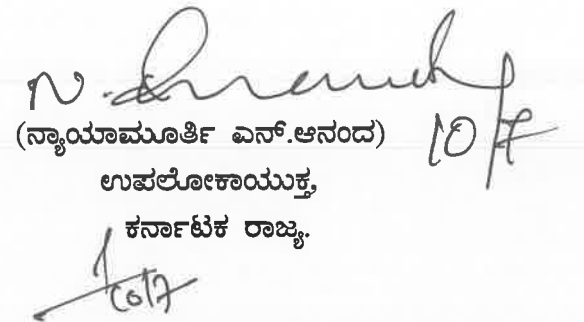 N. Anand
(ನ್ಯಾಯಾಮೂರ್ತಿ ಎನ್.ಆನಂದ) 10/7
ಉಪಲೋಕಾಯುಕ್ತ,
ಕರ್ನಾಟಕ ರಾಜ್ಯ.
10/7